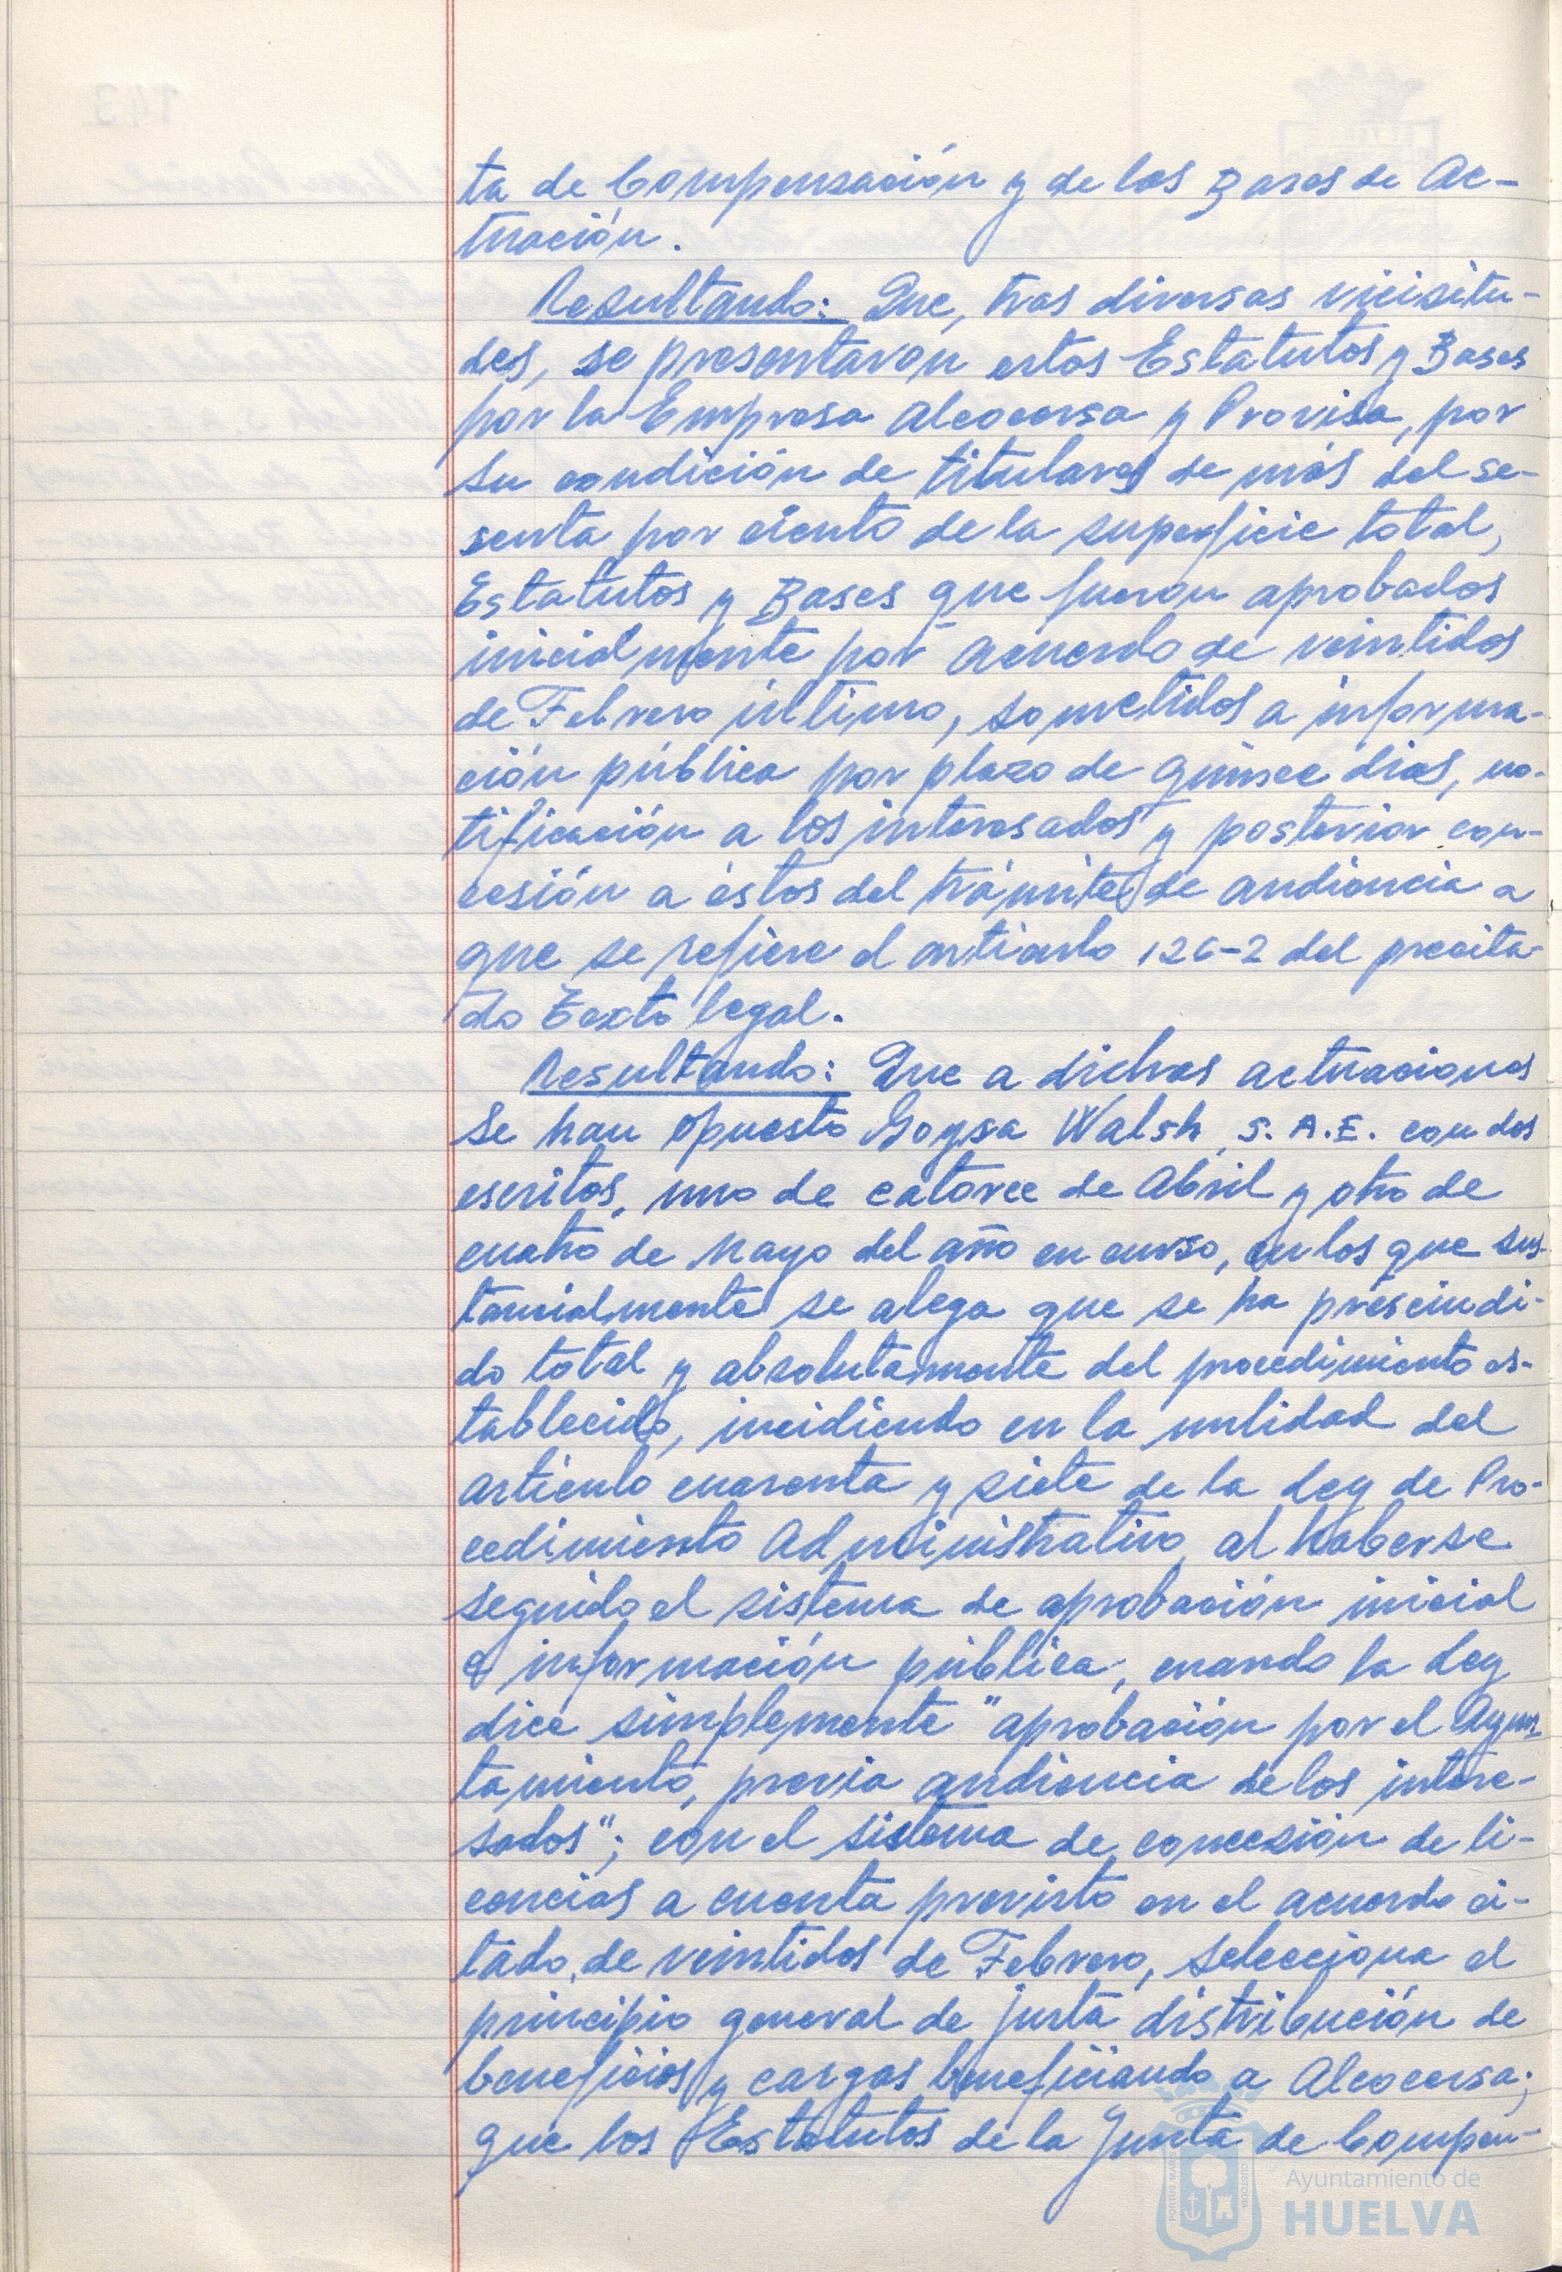 ta de Compensación y de las Bases de Ac-
tuación.
Resultando: Que, tras diversas vicisitu-
des, se presentaron estos Estatutos y Bases
por la Empresa Alcocersa y Provisa, por
su condición de titulares de más del se-
senta por ciento de la superficie total,
Estatutos y Bases que fueron aprobados
inicialmente por acuerdo de veintidos
de Febrero último, sometidos a informa-
ción pública por plazo de quince días, no-
tificación a los interesados y posterior con-
cesión a éstos del trámite de audiencia a
que se refiere el artículo 126-2 del precita-
do Texto legal.
Resultando: Que a dichas actuaciones
se han opuesto Goysa Walsh, S.A.E. con dos
escritos, uno de catorce de Abril y otro de
cuatro de Mayo del año en curso, en los que sus-
tancialmente se alega que se ha prescindi-
do total y absolutamente del procedimiento es-
tablecido, incidiendo en la nulidad del
artículo cuarenta y siete de la Ley de Pro-
cedimiento Administrativo, al haberse
seguido el sistema de aprobación inicial
e información pública, cuando la Ley
dice simplemente "aprobación por el Ayun-
tamiento, previa audiencia de los intere-
sados"; con el sistema de concesión de li-
cencias a cuenta previsto en el acuerdo ci-
tado, de veintidos de Febrero, selecciona el
principio general de justa distribución de
beneficios y cargas beneficiando a Alcocersa;
que los Estatutos de la Junta de Compen-
Ayuntamiento de
HUELVA